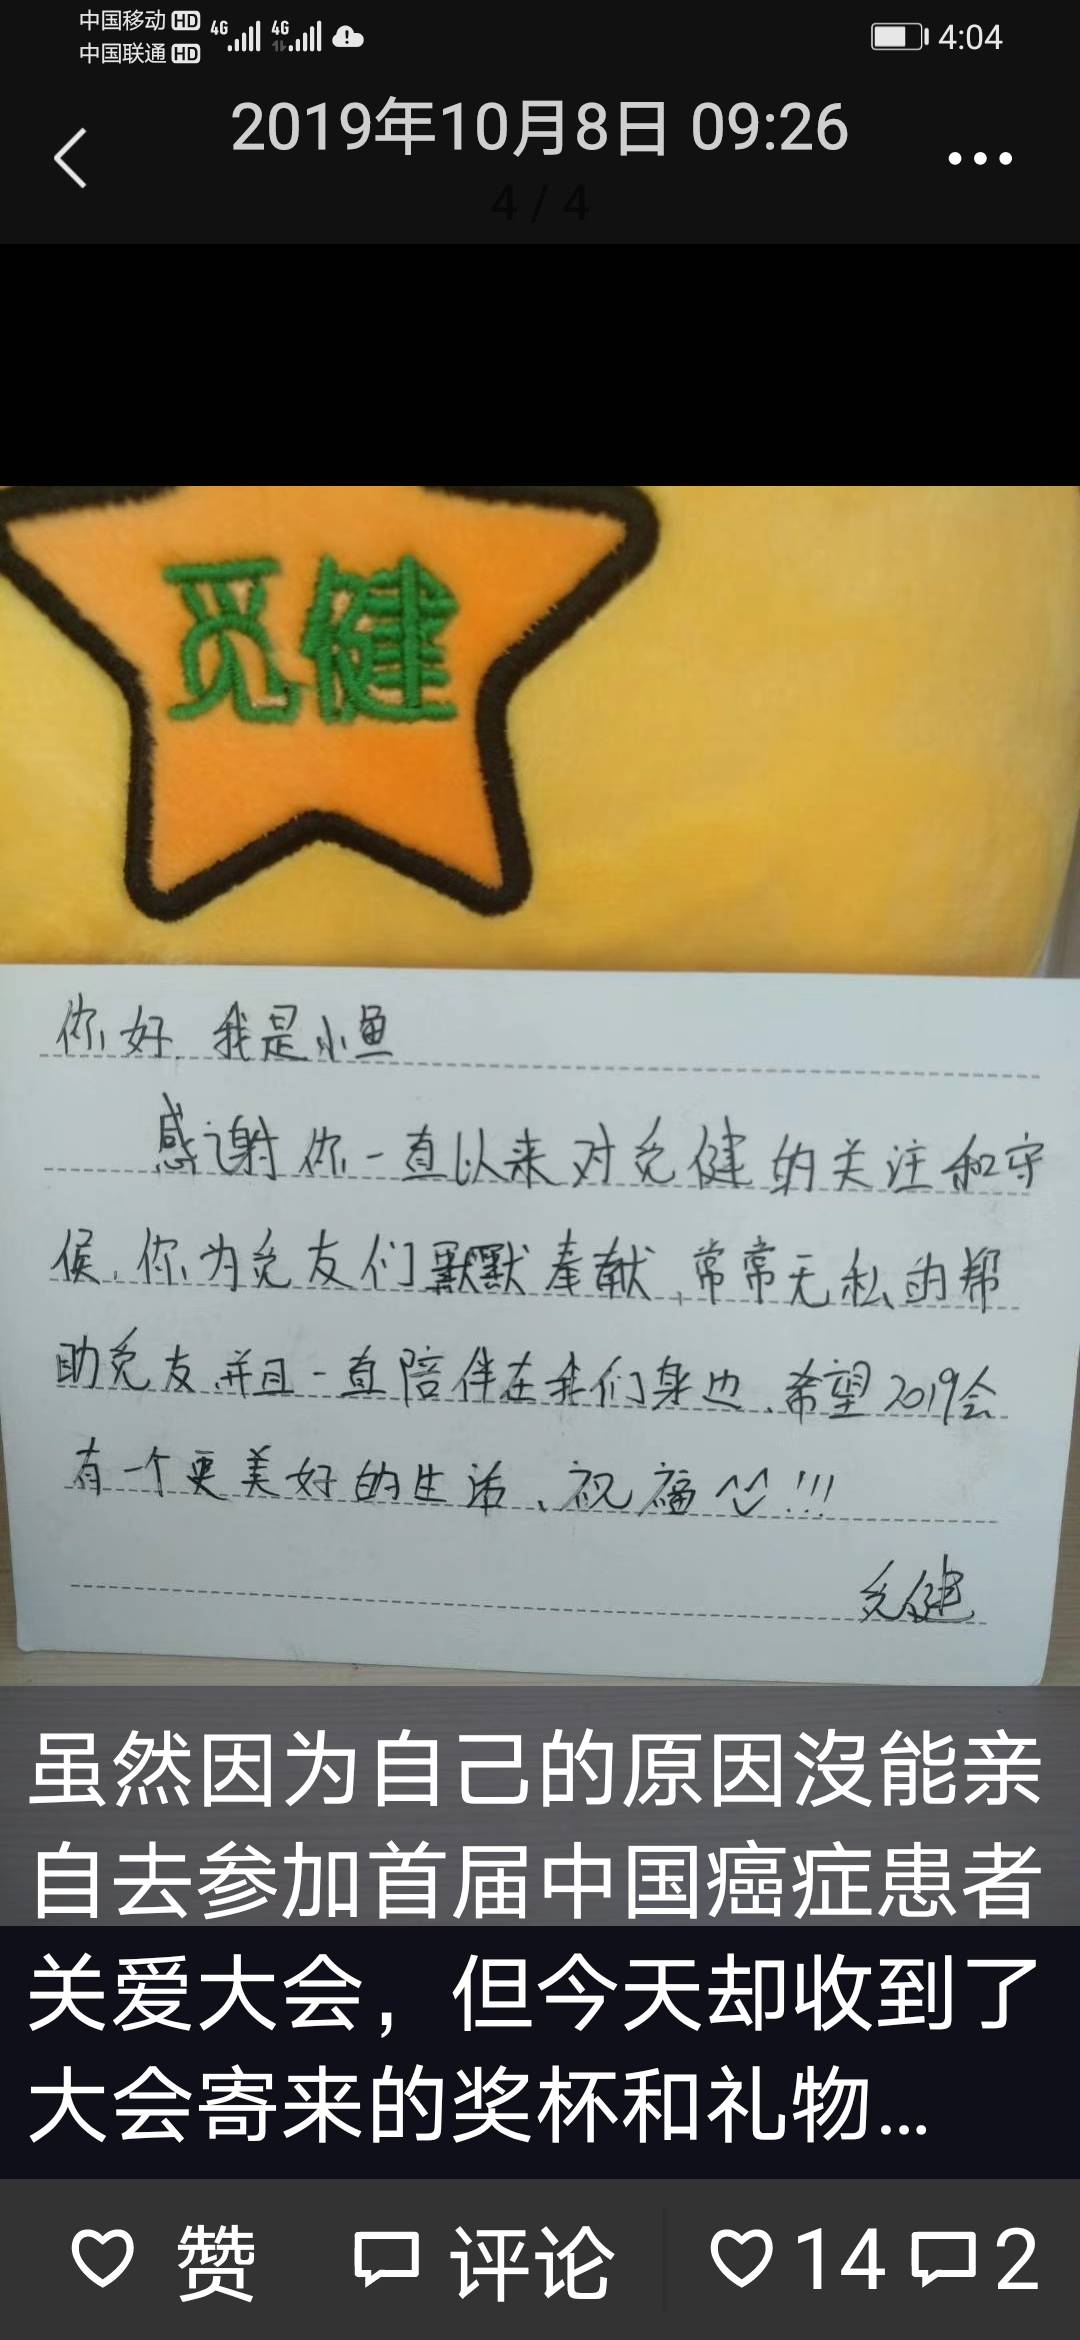 中国移动 HD 4G 4G 4:04
中国联通 HD
2019年10月8日 09:26
4 / 4
觅健
你好.我是小鱼
感谢你一直以来对觅健的关注和守
侯,你为觅友们默默奉献,常常无私的帮
助觅友,并且一直陪伴在我们身边,希望2019会
有一个更美好的生活、祝福^^!!!
觅健
虽然因为自己的原因沒能亲
自去参加首届中国癌症患者
关爱大会，但今天却收到了
大会寄来的奖杯和礼物...
赞 评论 14 2